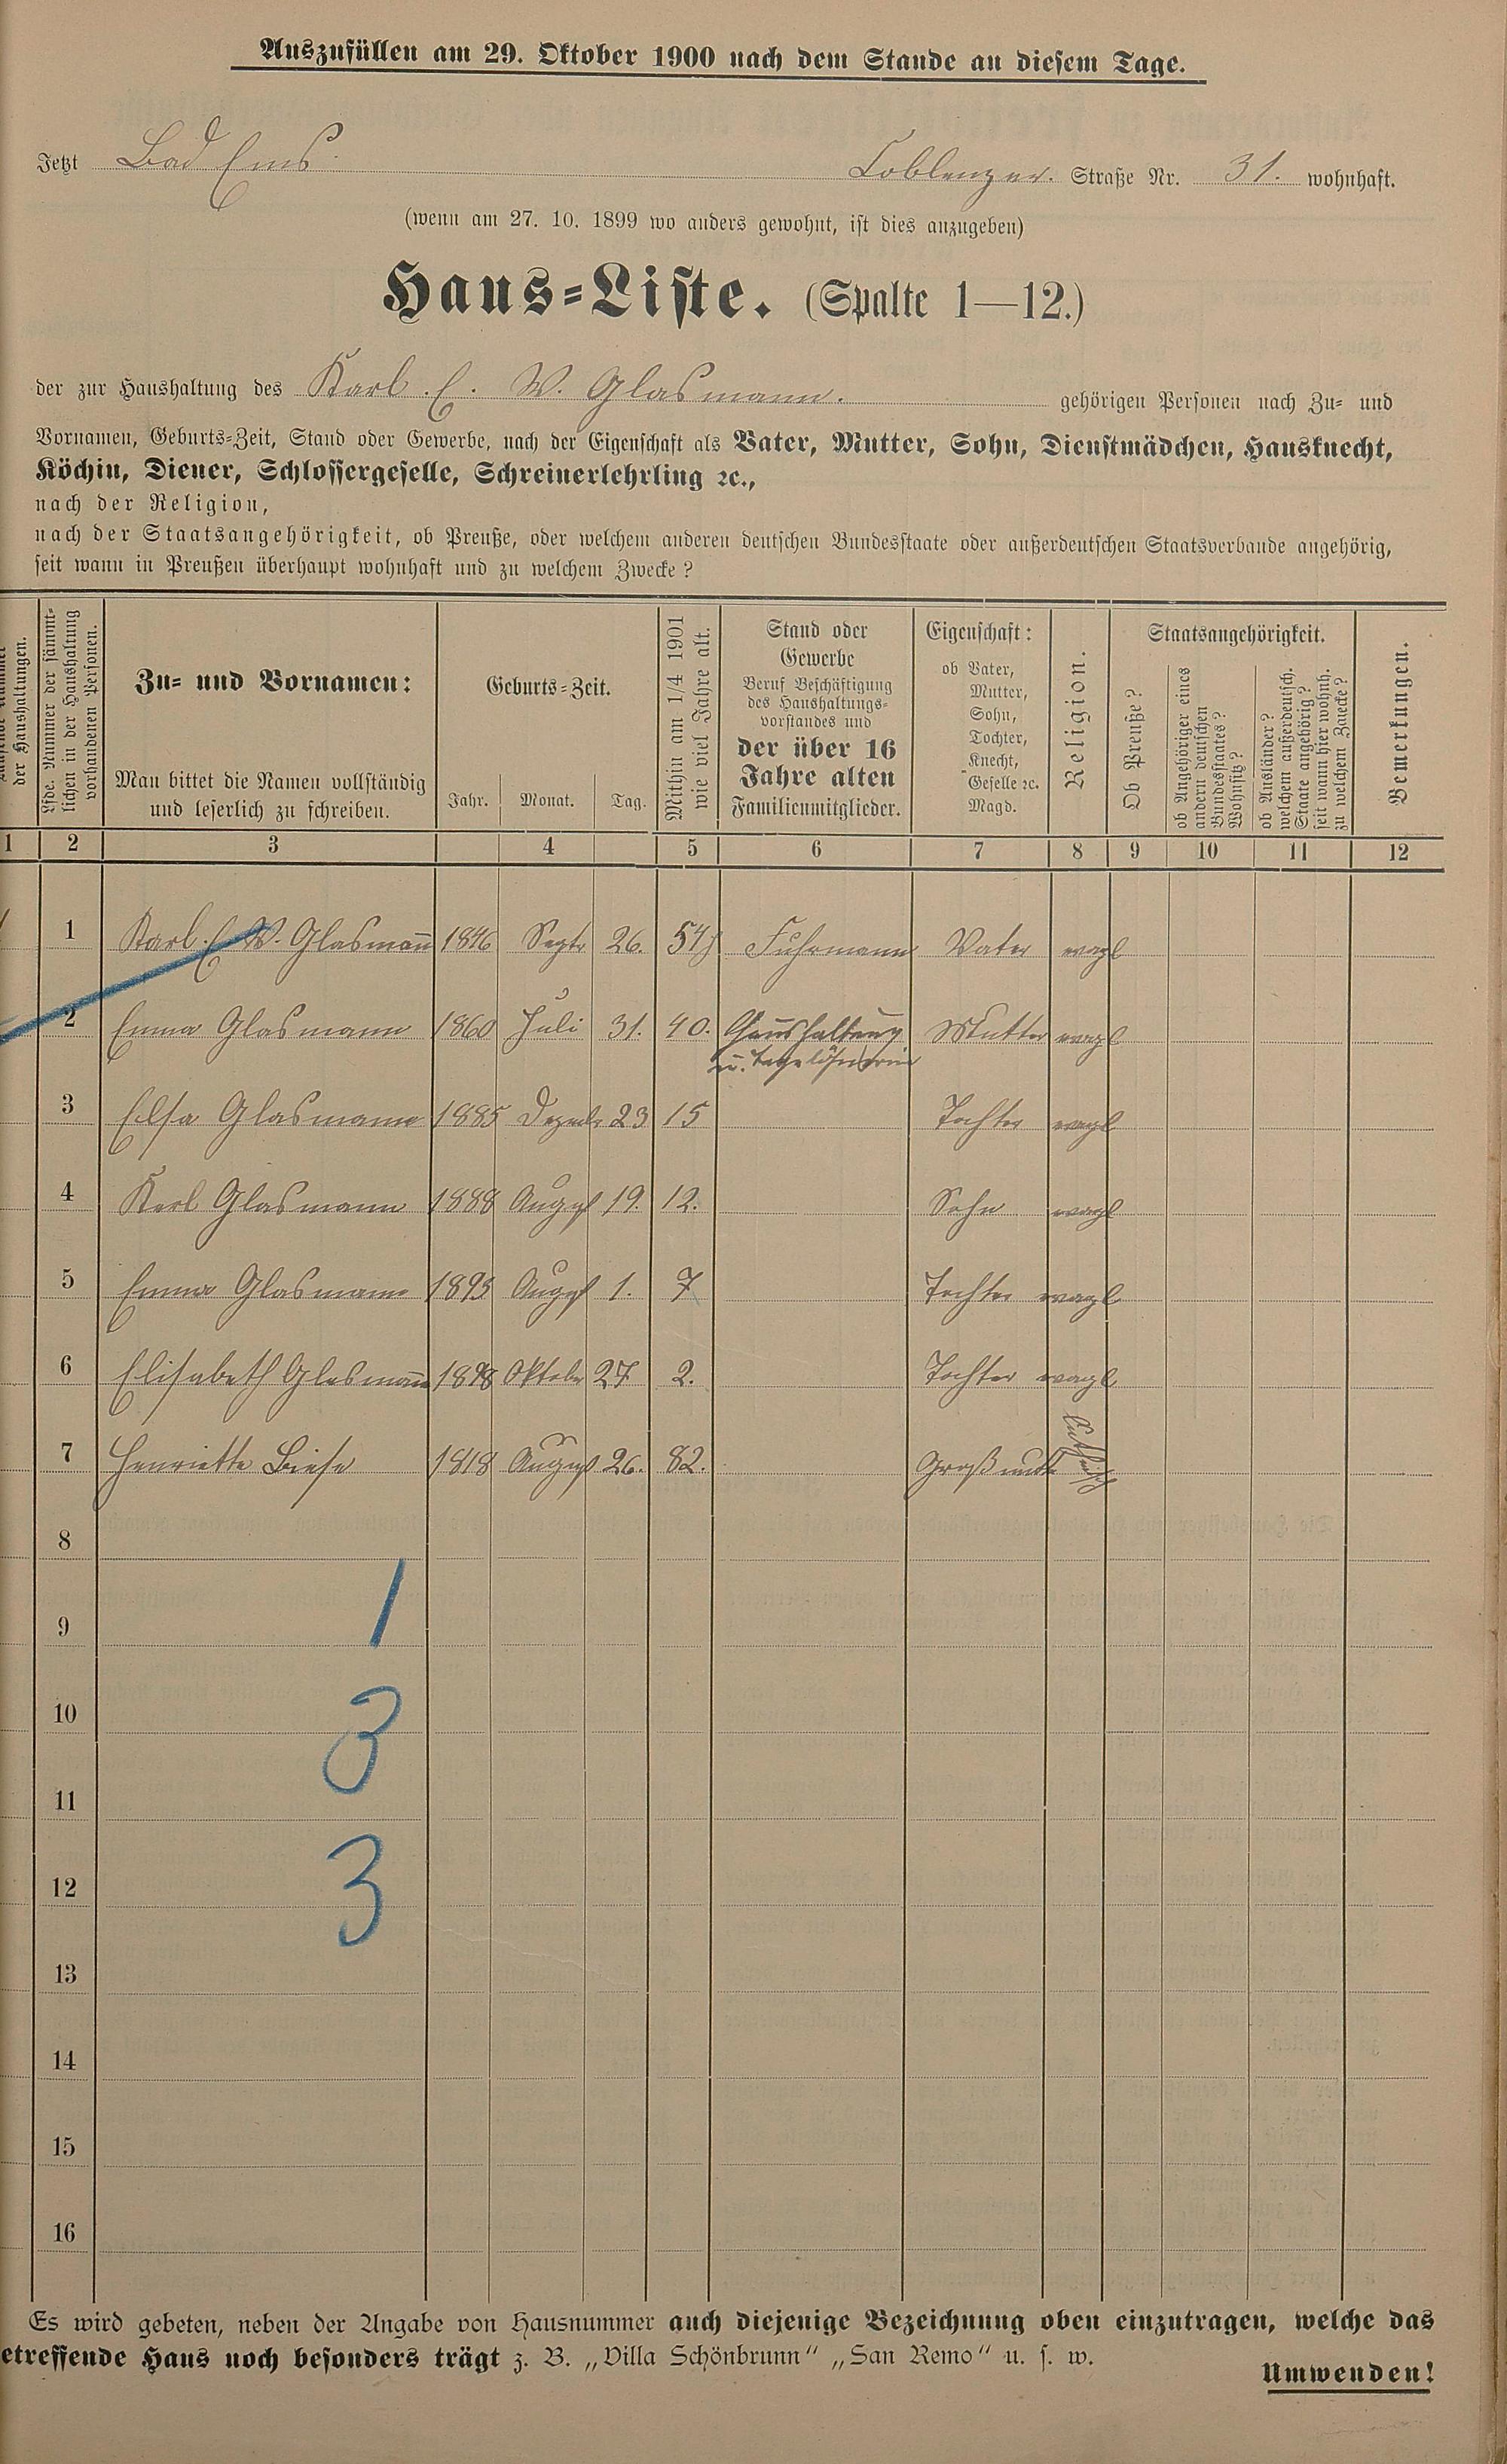 Auszufüllen am 29. Oktober 1900 nach dem Stande an diesem Tage.
Jetzt Bad Ems. Coblenzer. Straße Nr. 31. wohnhaft.
(wenn am 27. 10. 1899 wo anders gewohnt, ist dies anzugeben)
Haus=Liste. (Spalte 1—12.)
der zur Haushaltung des Karl. E. W. Glasmann. gehörigen Personen nach Zu= und
Vornamen, Geburts=Zeit, Stand oder Gewerbe, nach der Eigenschaft als Vater, Mutter, Sohn, Dienstmädchen, Hausknecht,
Köchin, Diener, Schlossergeselle, Schreinerlehrling ꝛc.,
nach der Religion,
nach der Staatsangehörigkeit, ob Preuße, oder welchem anderen deutschen Bundesstaate oder außerdeutschen Staatsverbande angehörig,
seit wann in Preußen überhaupt wohnhaft und zu welchem Zwecke?
der Haushaltungen.
Lfde. Nummer der sämmt=
lichen in der Haushaltung
vorhandenen Personen.
Zu= und Vornamen:
Man bittet die Namen vollständig
und leserlich zu schreiben.
Geburts=Zeit.
Jahr. Monat. Tag.
Mithin am 1/4 1901
wie viel Jahre alt.
Stand oder
Gewerbe
Beruf Beschäftigung
des Haushaltungs=
vorstandes und
der über 16
Jahre alten
Familienmitglieder.
Eigenschaft:
ob Vater,
Mutter,
Sohn,
Tochter,
Knecht,
Geselle ꝛc.
Magd.
Religion.
Staatsangehörigkeit.
Ob Preuße?
ob Angehöriger eines
andern deutschen
Bundesstaates?
Wohnsitz?
ob Ausländer?
welchem außerdeutsch.
Staate angehörig?
seit wann hier wohnh.
zu welchem Zwecke?
Bemerkungen.
1 2 3 4 5 6 7 8 9 10 11 12
1 Karl. E. W. Glasmañ 1846 Septr 26. 54 Fuhrmann Vater evagl
2 Emma Glasmann 1860 Juli 31. 40. Haushaltung Mutter evagl
u. Tagelöhnerin
3 Elsa Glasmann 1885 Dezembr 23 15 Tochter evagl
4 Karl Glasmann 1888 August 19. 12. Sohn evagl
5 Emma Glasmann 1893 August 1. 7 Tochter evagl
6 Elisabeth Glasmañ 1898 Oktober 27 2. Tochter evagl
7 Henriette Biese 1818 August 26. 82. Großmutter
8
9 1
10 3
11
12 3
13
14
15
16
Es wird gebeten, neben der Angabe von Hausnummer auch diejenige Bezeichnung oben einzutragen, welche das
etreffende Haus noch besonders trägt z. B. „Villa Schönbrunn“ „San Remo“ u. s. w.
Umwenden!